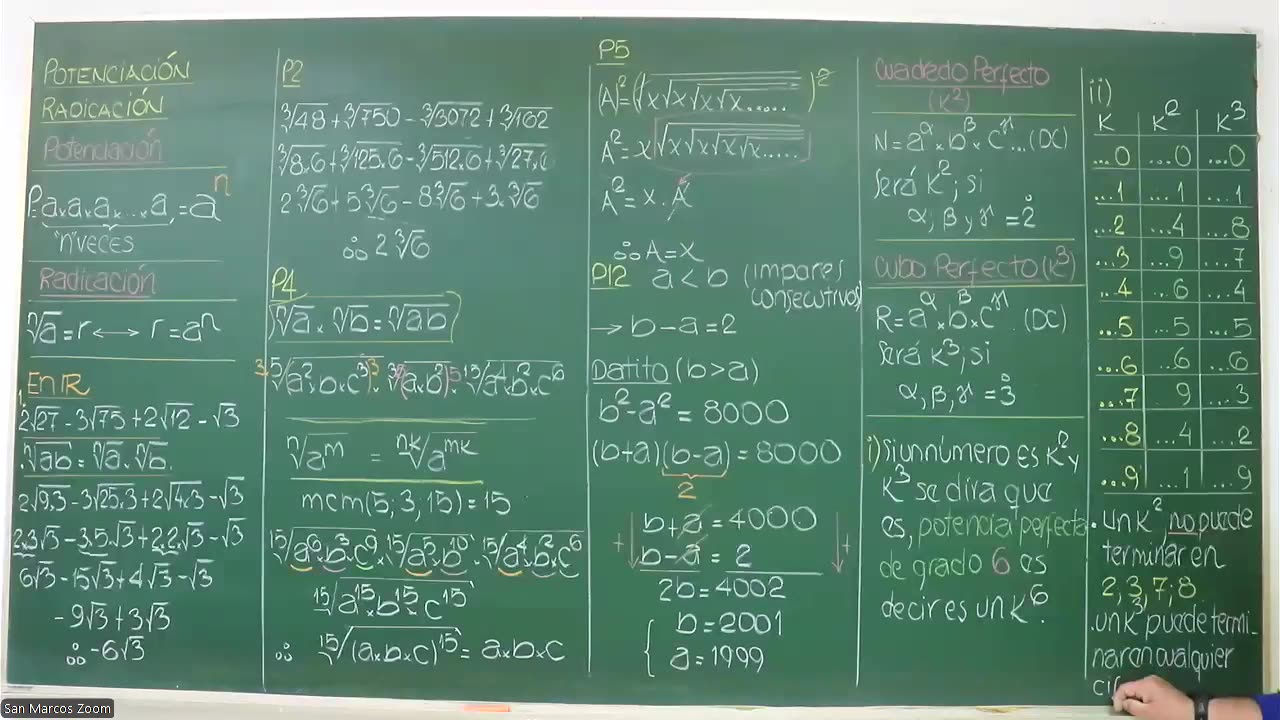 POTENCIACIÓN
RADICACIÓN
Potenciación
P=a×a×a×...×a = aⁿ
"n" veces
Radicación
ⁿ√a = r ⟷ r = aⁿ
En ℝ
1. 2√27 - 3√75 + 2√12 - √3
ⁿ√ab = ⁿ√a . ⁿ√b.
2√9.3 - 3√25.3 + 2√4.3 - √3
2.3√3 - 3.5.√3 + 2.2.√3 - √3
6√3 - 15√3 + 4√3 - √3
-9√3 + 3√3
∴ -6√3
P2
³√48 + ³√750 - ³√3072 + ³√162
³√8.6 + ³√125.6 - ³√512.6 + ³√27.6
2³√6 + 5³√6 - 8³√6 + 3.³√6
∴ 2³√6
P4
ⁿ√a × ⁿ√b = ⁿ√ab
ⁿ√aᵐ = ⁿᵏ√aᵐᵏ
mcm(5; 3, 15) = 15
¹⁵√a⁶×b³×c⁹ × ¹⁵√a⁵×b¹⁰ × ¹⁵√a⁴×b²×c⁶
¹⁵√a¹⁵×b¹⁵×c¹⁵
∴ ¹⁵√(a×b×c)¹⁵ = a×b×c
P5
(A)² = (√x√x√x√x......)²
A² = x√x√x√x√x.....
A² = x . A
∴ A = x
P12 a < b (impares consecutivos)
→ b - a = 2
Datito (b > a)
b² - a² = 8000
(b+a)(b-a) = 8000
2
b + a = 4000
b - a = 2
2b = 4002
b = 2001
a = 1999
Cuadrado Perfecto
(K²)
N = a^α × b^β × c^γ ... (DC)
Será K²; si
α, β y γ = 2̊
Cubo Perfecto (K³)
R = a^α × b^β × c^γ ... (DC)
Será K³; si
α, β, γ = 3̊
i) si un número es K² y
K³ se dira que
es, potencia perfecta
de grado 6 es
decir es un K⁶.
ii)
K K² K³
...0 ...0 ...0
...1 ...1 ...1
...2 ...4 ...8
...3 ...9 ...7
...4 ...6 ...4
...5 ...5 ...5
...6 ...6 ...6
...7 ...9 ...3
...8 ...4 ...2
...9 ...1 ...9
. un K² no puede
terminar en
2, 3, 7; 8.
. un K³ puede termi-
nar en cualquier
San Marcos Zoom